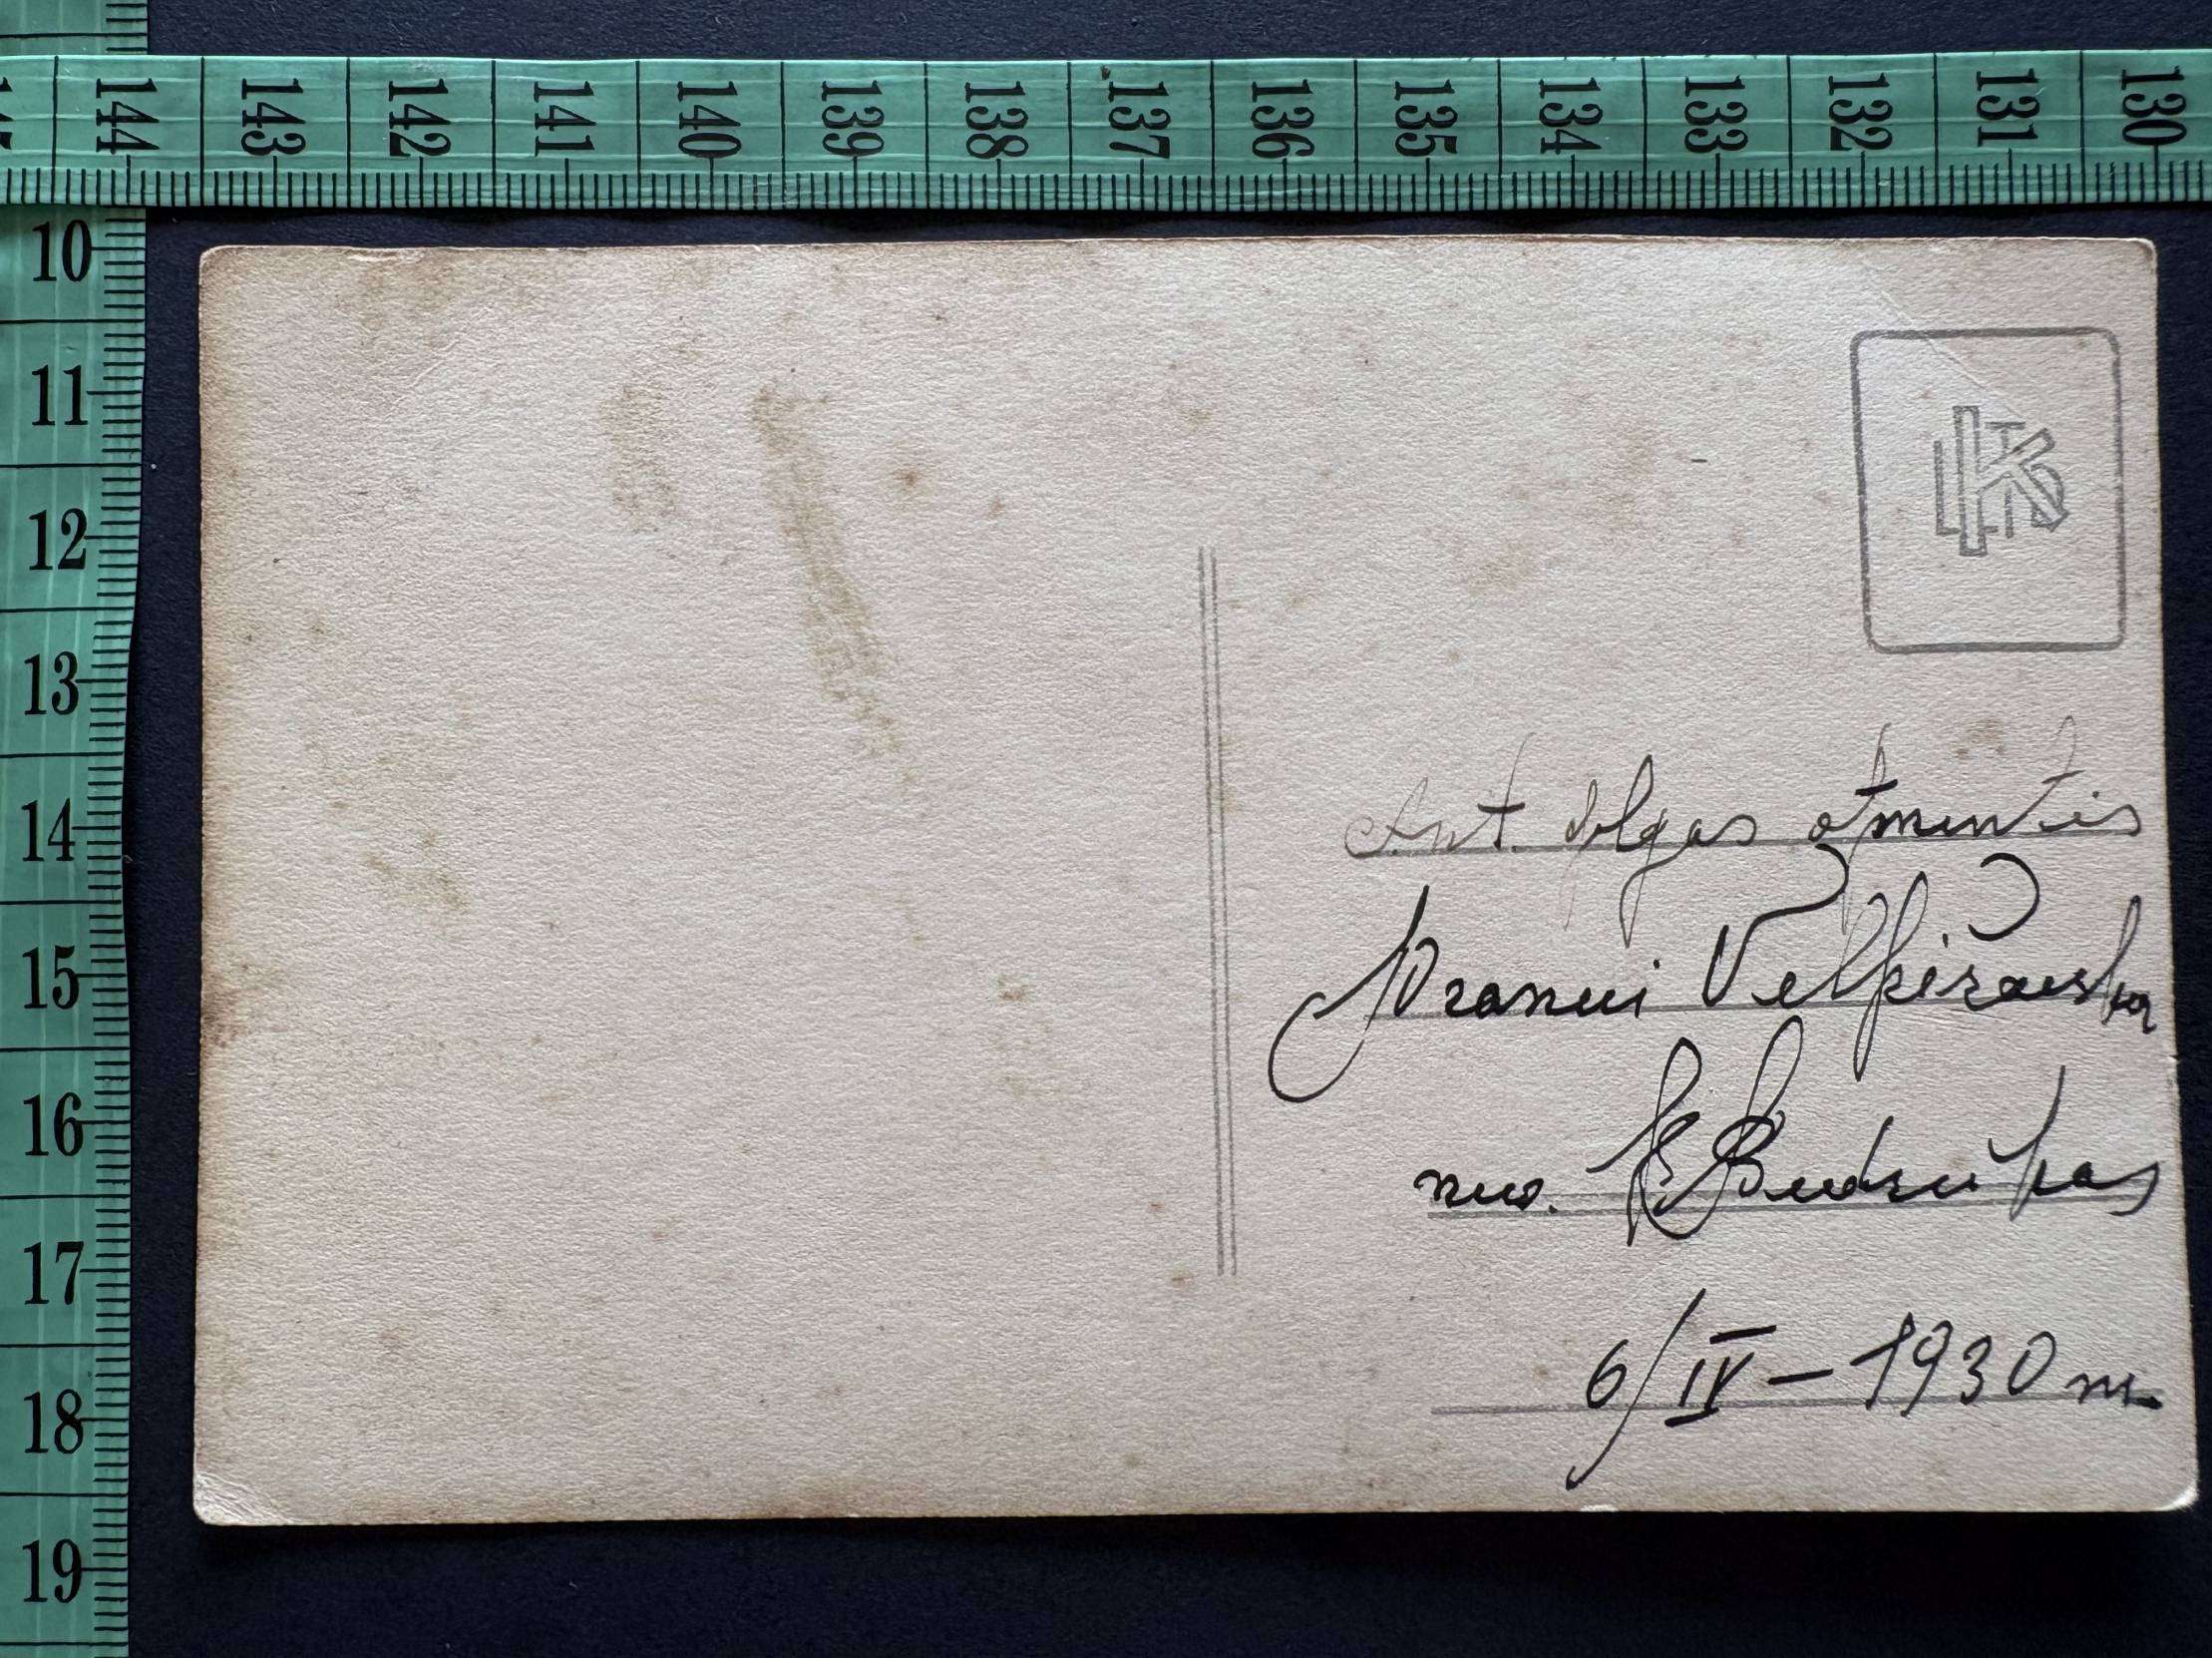 144 143 142 141 140 139 138 137 136 135 134 133 132 131 130
10
11
12
13
14
15
16
17
18
19
Ant. ilgas atminties
Pranui
nuo. K Budriukas
6/IV — 1930 m.